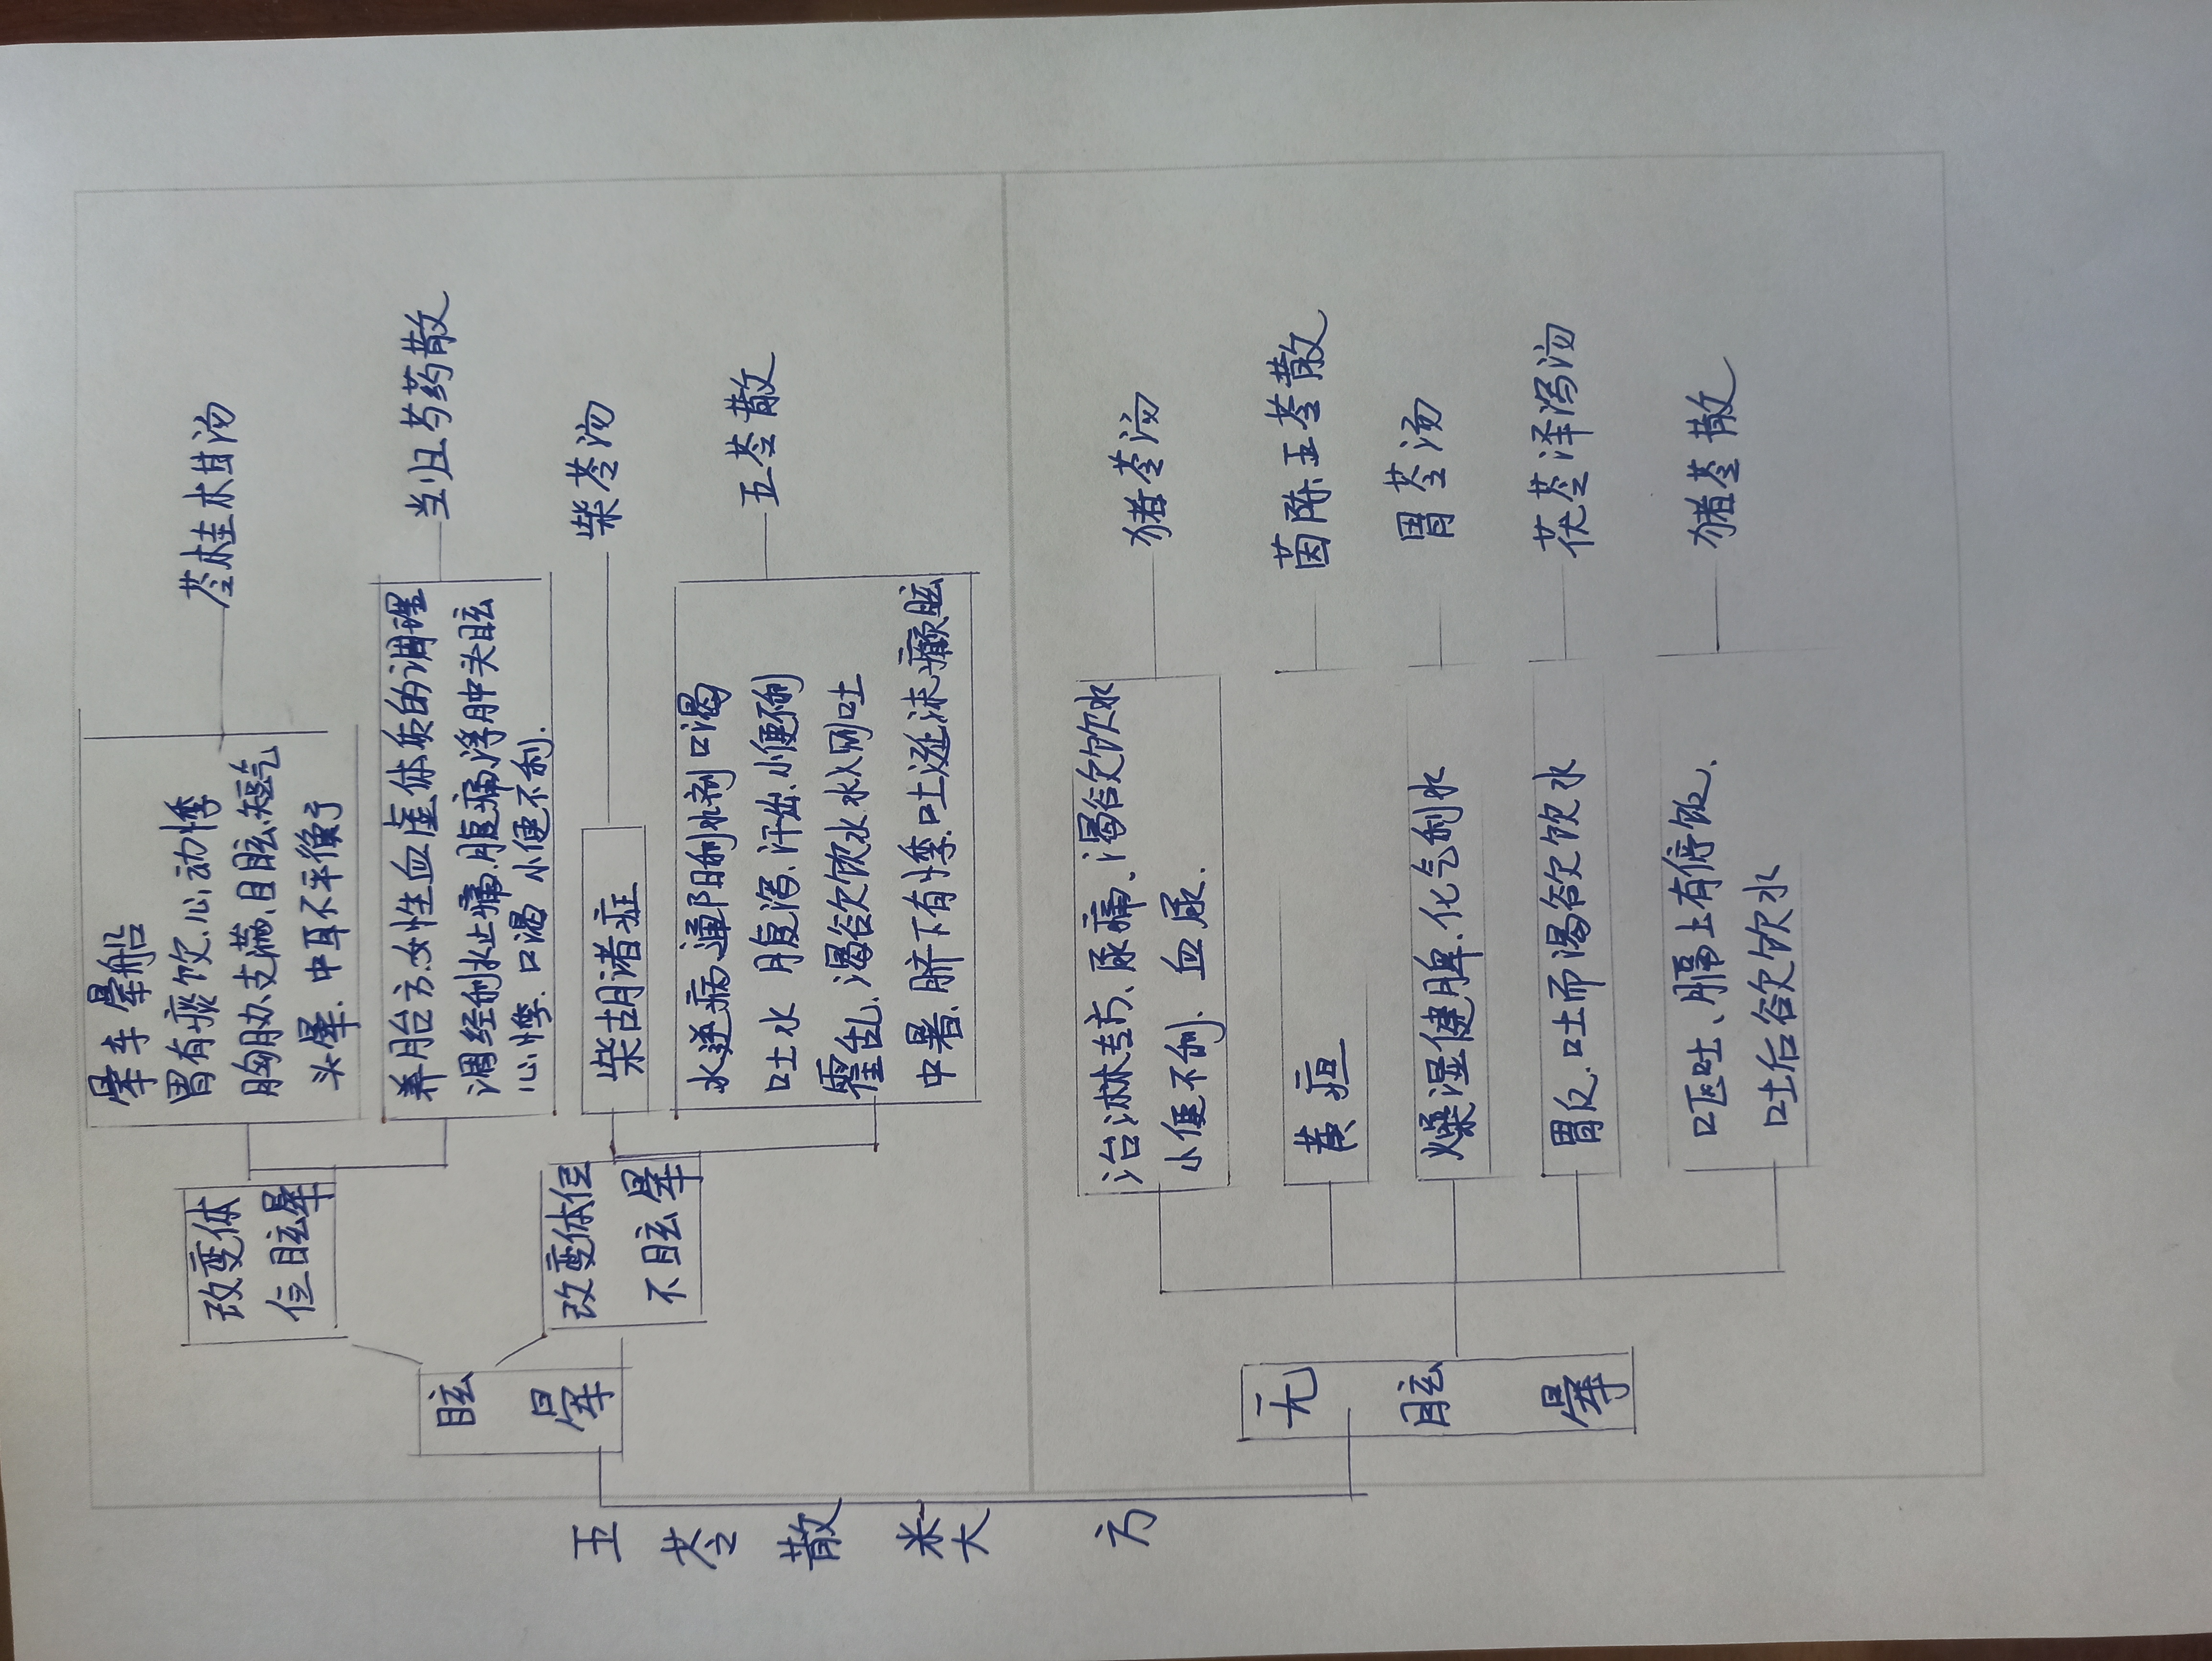 五苓散类方
眩
晕
改变体
位眩晕
晕车晕船
胃有痰饮.心动悸
胸胁支满.目眩短气
头晕.中耳不平衡
苓桂术甘汤
养胎方.女性血虚体质的调理
调经利水止痛.腹痛浮肿头眩
心悸.口渴 小便不利.
当归芍药散
改变体位
不眩晕
柴胡诸症
柴苓汤
水逆病.通阳利水剂口渴
吐水 腹泻.汗出.小便不利
霍乱.渴欲饮水水入则吐
中暑.脐下有悸.吐涎沫癫眩
五苓散
无
眩
晕
治淋专方、尿痛.渴欲饮水
小便不利. 血尿.
猪苓汤
黄疸
茵陈五苓散
燥湿健脾.化气利水
胃苓汤
胃反.吐而渴欲饮水
茯苓泽泻汤
呕吐、膈上有停饮、
吐后欲饮水
猪苓散